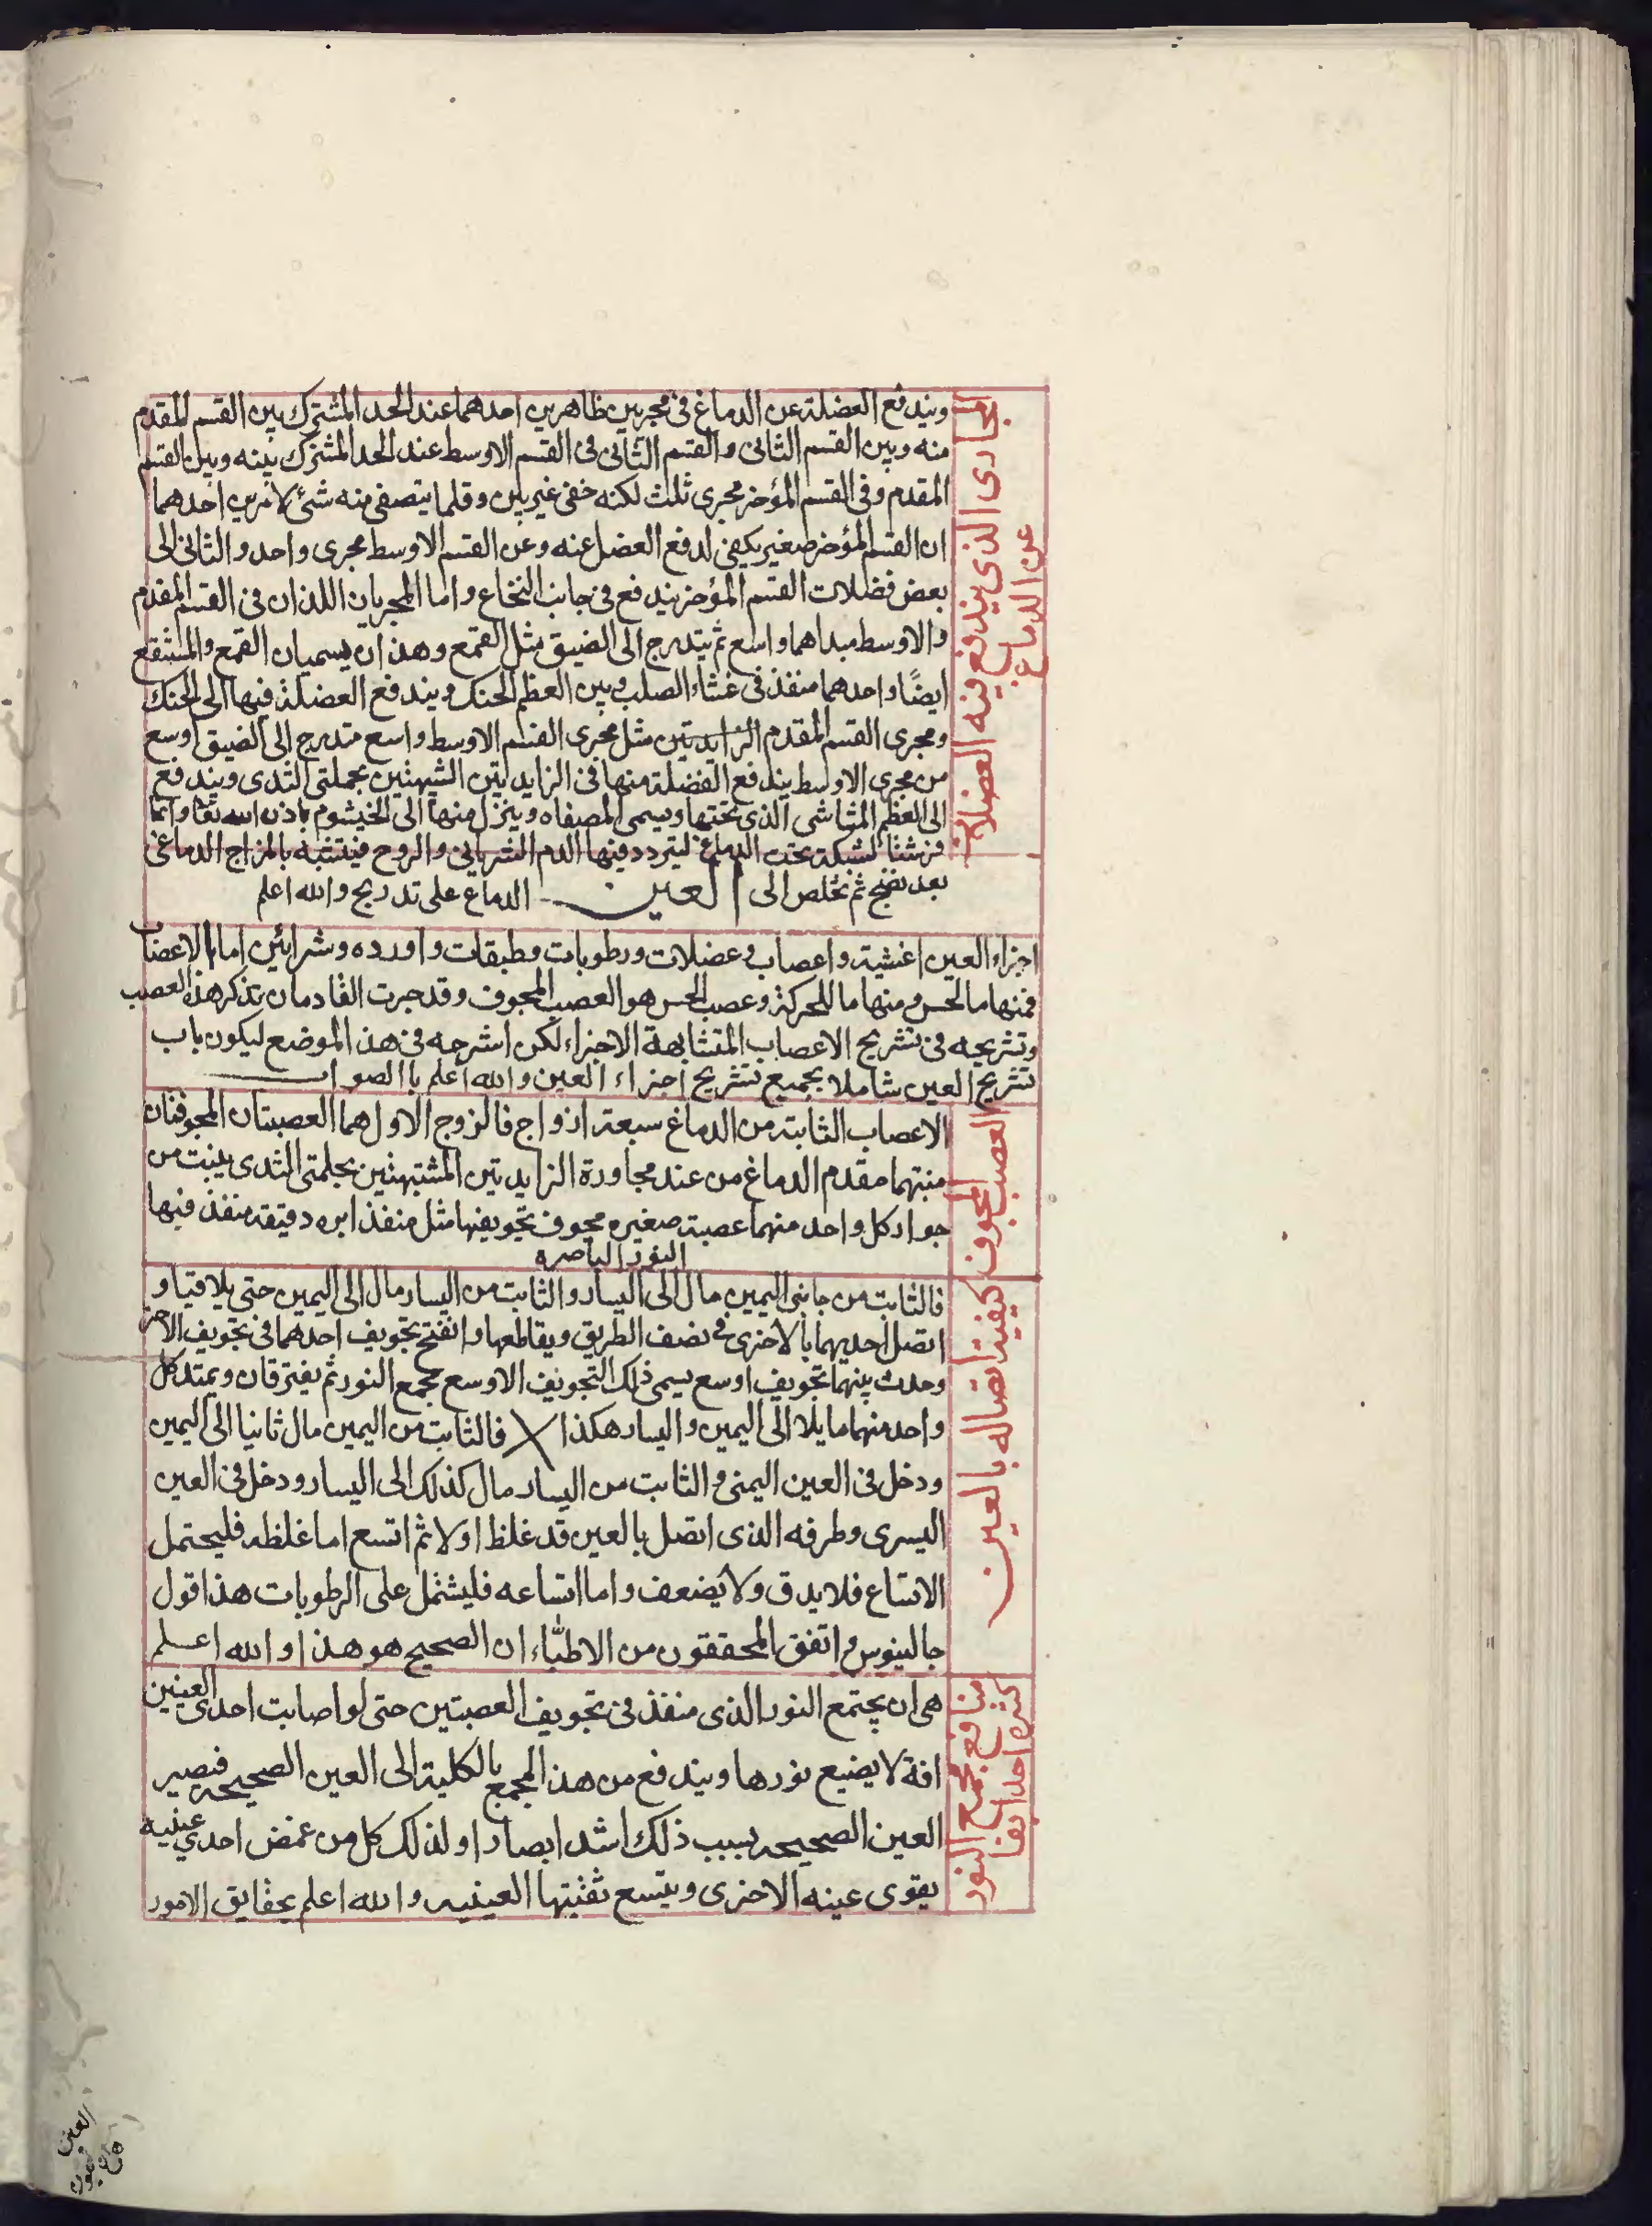 المجارى الذى يندفع فيه العضلات
عن الدماغ
ويندفع العضلة عن الدماغ فى مجريين ظاهرين احدهما عند الحد المشترك بين القسم المقدم
منه وبين القسم الثانى والقسم الثانى فى القسم الاوسط عند الحد المشترك بينه وبين القسم
المقدم وفى القسم المؤخر مجرى ثلث لكنه خفى غير بين وقلما يتصفى منه شئ لامرين احدهما
ان القسم المؤخر صغير يكفى لدفع العضل عنه وعن القسم الاوسط مجرى واحد والثانى الى
بعض فضلات القسم المؤخر يندفع فى جانب النخاع واما المجريان اللذان فى القسم المقدم
والاوسط مبداهما واسع ثم يتدرج الى الضيق مثل القمع وهذان يسميان القمع والمستنقع
ايضًا واحدهما منفذ فى غشاء الصلب وبين العظم الحنك ويندفع العضلة فيها الى الحنك
ومجرى القسم المقدم الزايدتين مثل مجرى القسم الاوسط واسع متدرج الى الضيق اوسع
من مجرى الاوسط يندفع الفضلة منها فى الزايدتين الشبيهتين بحملتى الثدى ويندفع
الى العظم المشاشى الذى تحتها ويسمى المصفاه وينزل منها الى الخيشوم باذن الله تعا وانما
فرشتا لشبكة تحت الدماغ ليتردد فيها الدم الشريانى والروح فيتشبه بالمزاج الدماغى
بعد نضج ثم تخلص الى العين الدماغ على تدريج والله اعلم
اجزاء العين اغشية واعصاب وعضلات ورطوبات وطبقات واورده وشرائين اما الاعصاب
فمنها ما لحس ومنها ما للحركة وعصب الحس هو العصب المجوف وقد جرت القادمان بذكر هذا العصب
وتشريحه فى تشريح الاعصاب المتشابهة الاجزاء لكن اشرحه فى هذ الموضع ليكون باب
تشريح العين شاملا بجميع تشريح اجزاء العين والله اعلم باالصواب
العصب المجوف
الاعصاب الثابته من الدماغ سبعة ازواج فالزوج الاول هما العصبتان المجوفتان
منبتهما مقدم الدماغ من عند مجاورة الزايدتين المشتبهتين بحلمتى الثدى ينبت من
جوار كل واحد منهما عصبة صغيره مجوف تجويفها مثل منفذ ابره دقيقة منفذ فيها
النور الباصره
كيفية اتصاله بالعين
فالثابت من جانبى اليمين مال الى اليسار والثابت من اليسار مال الى اليمين حتى يلاقتيا و
اتصل احديهما بالاخرى فى نصف الطريق ويقاطعها وانفتح تجويف احدهما فى تجويف الاخر
وحدث بينهما تجويف اوسع يسمى ذلك التجويف الاوسع مجمع النور ثم يفترقان ويمتد كل
واحد منهما مايلا الى اليمين واليسار هكذا فالثابت من اليمين مال ثانيا الى اليمين
ودخل فى العين اليمنى والثابت من اليسار مال كذلك الى اليسار ودخل فى العين
اليسرى وطرفه الذى اتصل بالعين قد غلظ اولا ثم اتسع اما غلظه فليحتمل
الاتساع فلا يدق ولا يضعف واما اتساعه فليشتمل على الرطوبات هذا قول
جالينوس واتفق المحققون من الاطبّاء ان الصحيح هو هذا والله اعلم
منافع مجمع النور
كثيره احدايها
هى ان يجتمع النور الذى منفذ فى تجويف العصبتين حتى لو اصابت احدى العينين
افة لا يضيع نورها ويندفع من هذ المجمع بالكلية الى العين الصحيحه فيصير
العين الصحيحه بسبب ذلك اشد ابصارا ولذلك كل من غمض احدى عينيه
يقوى عينه الاخرى ويتسع ثقبتها العينيه والله اعلم بحقايق الامور
العين